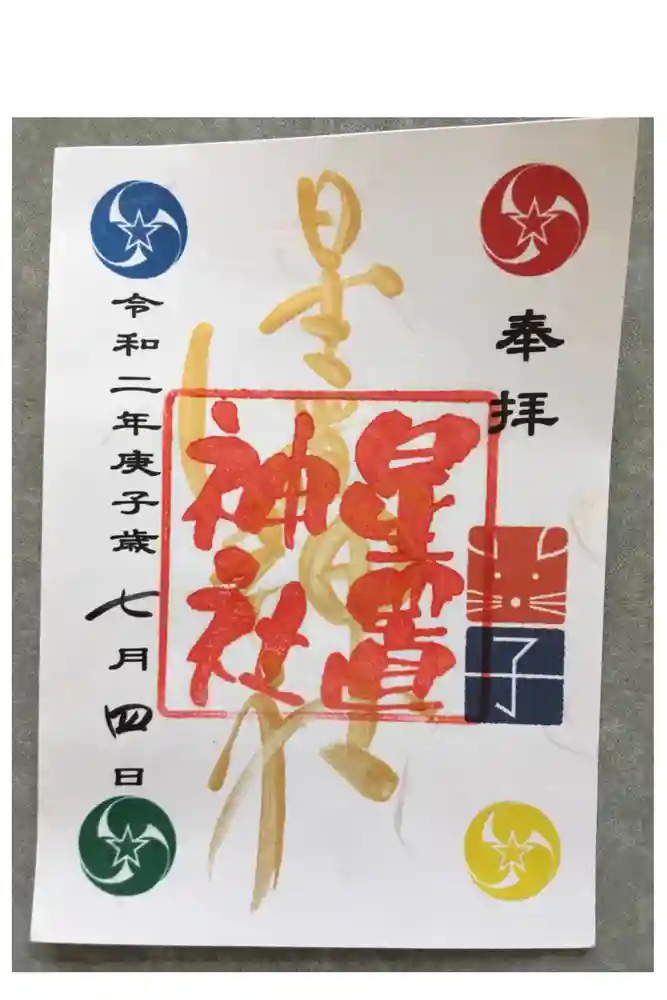 奉拝
星置神社
星置
神社
子
令和二年庚子歳七月四日